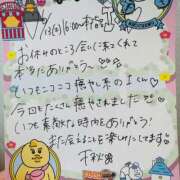 (水)16:00~
お休みのところ会いに来てくれて
本当にありがとう
いつもニコニコ癒やし系のよくん
今回もたくさん癒やされました
いつも素敵な時間をありがとう
また会えることを楽しみにしてます